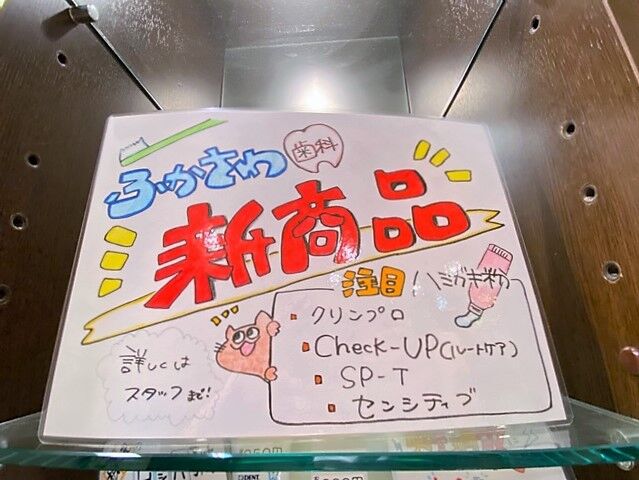 ふかさわ歯科
新商品
注目 ハミガキ粉
クリンプロ
Check-UP(ルートケア)
SP-T
センシティブ
詳しくは
スタッフまで!!